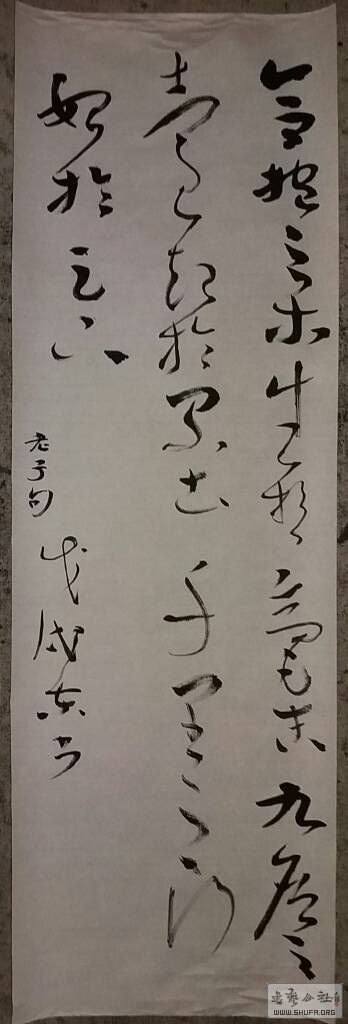 合抱之木生於毫末九層之
臺起於累土千里之行
始於足下
老子句
戊戌书
書藝公社
WWW.SHUFA.ORG